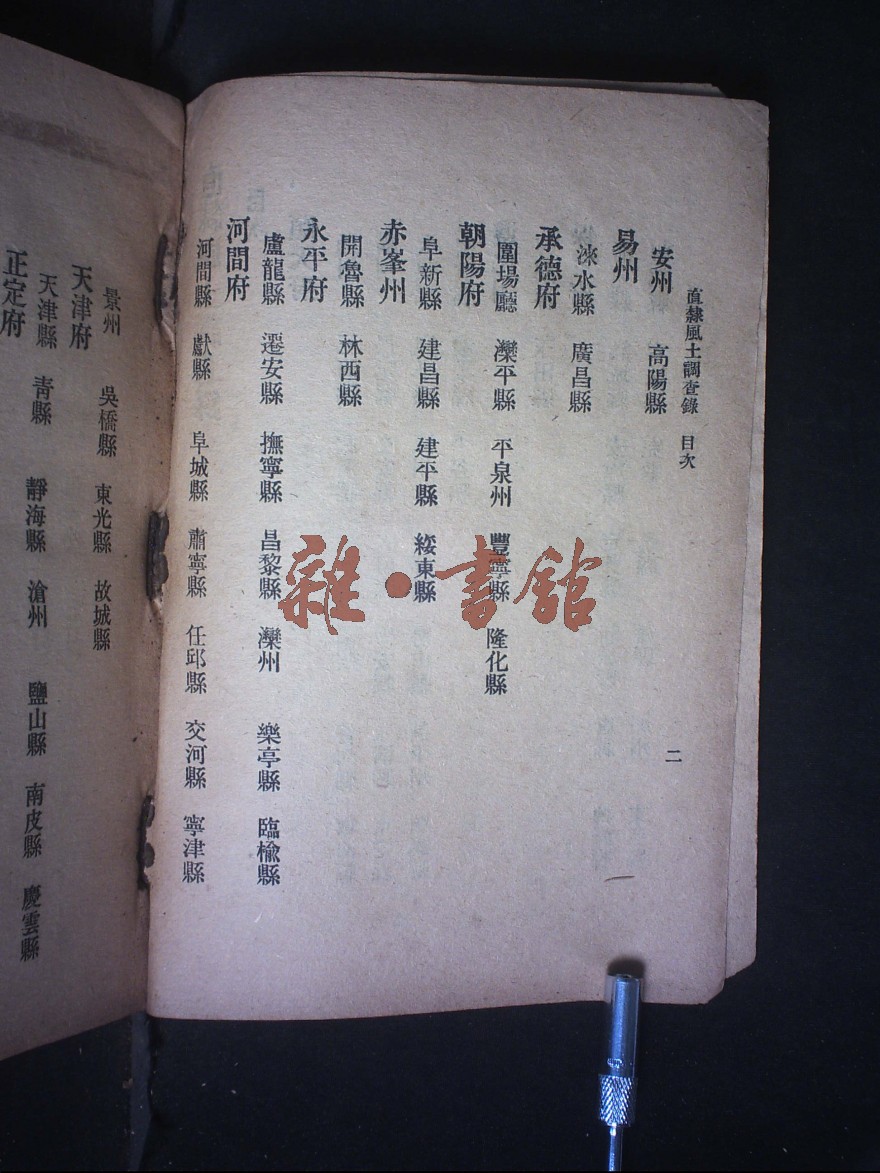 直隸風土調查錄 目次
二
安州 高陽縣
易州
淶水縣 廣昌縣
承德府
圍場廳 灤平縣 平泉州 豐寧縣 隆化縣
朝陽府
阜新縣 建昌縣 建平縣 綏東縣
赤峯州
開魯縣 林西縣
永平府
盧龍縣 遷安縣 撫寧縣 昌黎縣 灤州 樂亭縣 臨榆縣
河間府
河間縣 獻縣 阜城縣 肅寧縣 任邱縣 交河縣 寧津縣
景州 吳橋縣 東光縣 故城縣
天津府
天津縣 靑縣 靜海縣 滄州 鹽山縣 南皮縣 慶雲縣
正定府
雜·書館